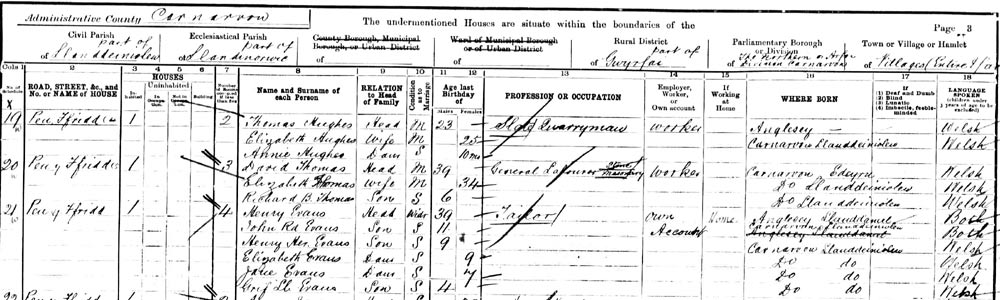 Administrative County Carnarvon
The undermentioned Houses are situate within the boundaries of the
Page 3
Civil Parish
part of
of Llanddeiniolen
Ecclesiastical Parish
part of
of Llandinorwic
County Borough, Municipal
Borough, or Urban District
of
Ward of Municipal Borough
or of Urban District
of
Rural District
part of
of Gwyrfai
Parliamentary Borough
or Division
of The Northern or Arfon
Division Carnarvon
Town or Village or Hamlet
of Villages
Cols 1 2 3 4 5 6 7 8 9 10 11 12 13 14 15 16 17 18
No. of Schedule
ROAD, STREET, &c., and
No. or NAME of HOUSE
HOUSES
Inhabited
Uninhabited
In Occupation
Not in Occupation
Building
Name and Surname of
each Person
RELATION
to Head
of Family
Condition
as to
Marriage
Age last
Birthday
of
Males Females
PROFESSION OR OCCUPATION
Employer,
Worker,
or
Own account
If
Working
at
Home
WHERE BORN
If
(1) Deaf and Dumb
(2) Blind
(3) Lunatic
(4) Imbecile, feeble-
minded
LANGUAGE
SPOKEN
(children under
3 years of age to
be excluded)
19 1 2 Thomas Hughes Head M 23 Slate Quarryman worker Anglesey Welsh
Elizabeth Hughes Wife M 25 Carnarvon Llanddeiniolen Welsh
Annie Hughes Daur S 10 ms Do
20 Pen y Ffridd 1 3 David Thomas Head M 39 General Labourer Stone Masonry worker Carnarvon Edeyrn Welsh
Elizabeth Thomas wife M 34 Do Llanddeiniolen Welsh
Richard B. Thomas Son S 6 Do Llanddeiniolen Welsh
21 Pen y Ffridd 1 4 Henry Evans Head Widr 39 Taylor Own Account Home Anglesey Llanddaniel Both
John Rd Evans Son S 11 Carnarvon Llanddeiniolen Both
Anglesey Llanddaniel
Henry Evans Son S 9 Carnarvon Llanddeiniolen Welsh
Elizabeth Evans Daur S 9 Do do Welsh
Jane Evans Daur S 7 Do do Welsh
Evans Son S 4 Do do Welsh
22